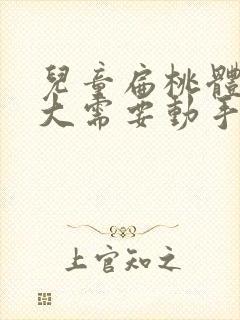 兒童扁桃體
大需要動手
上官知之